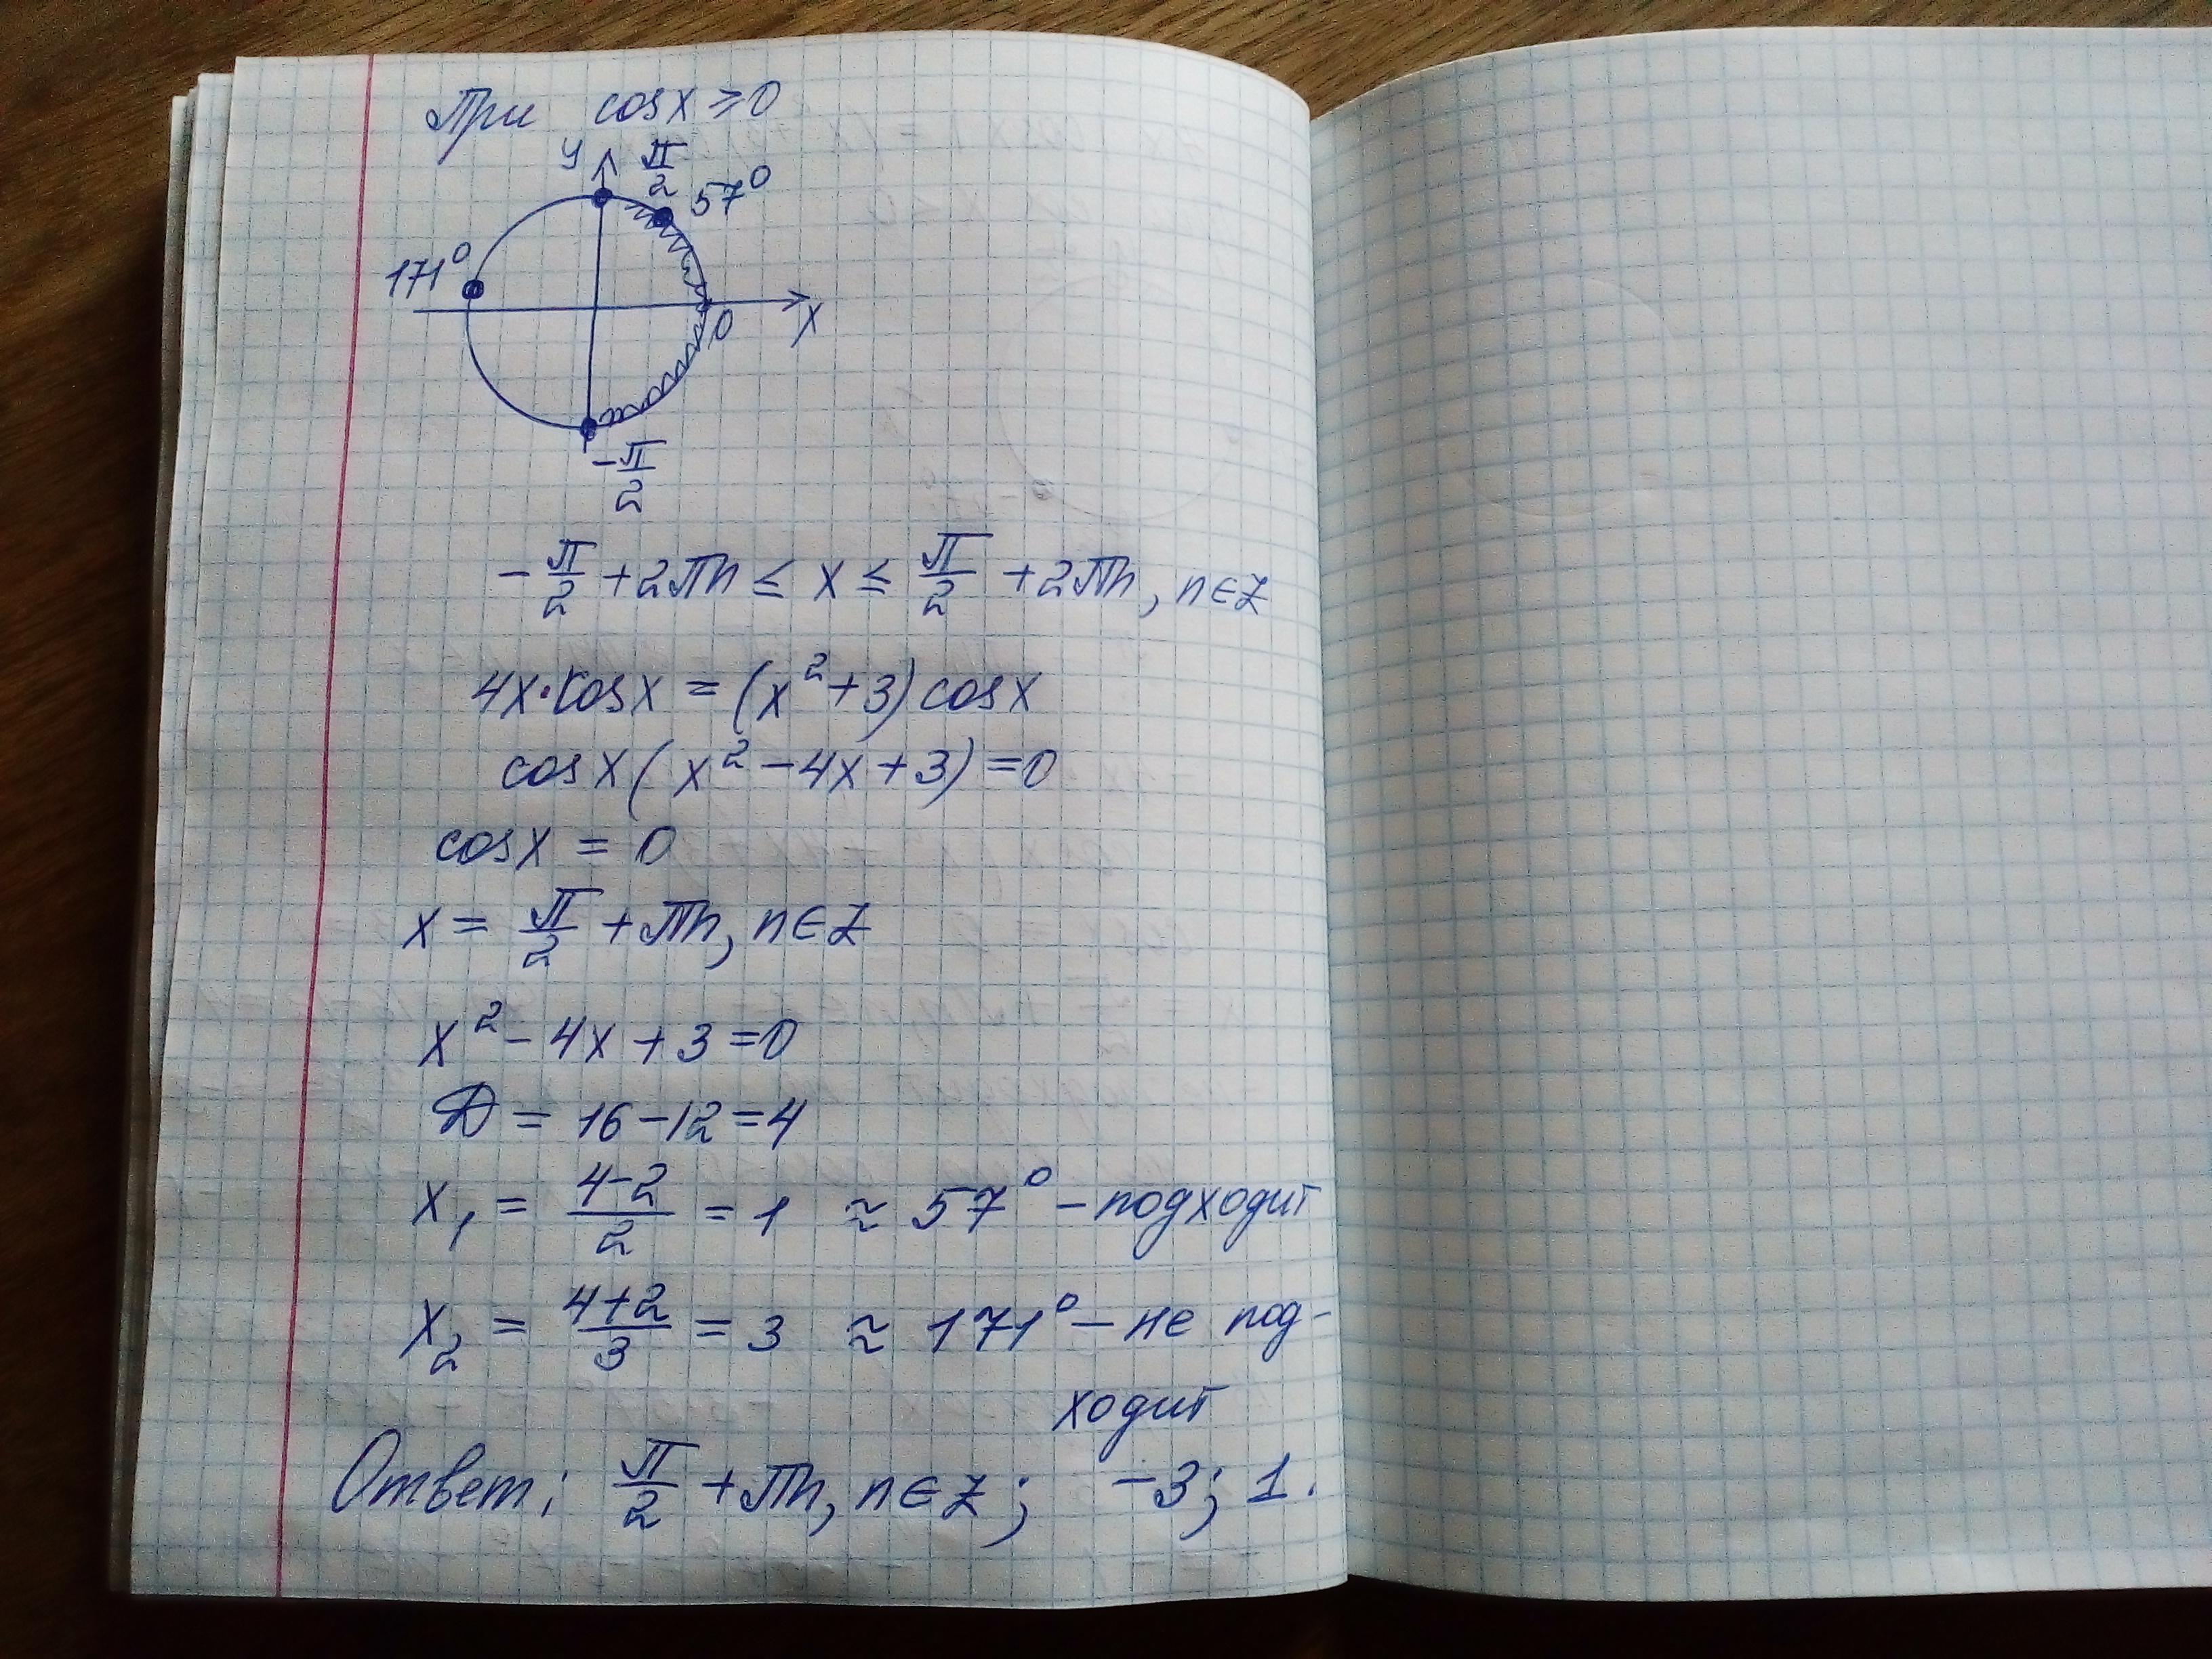 При cosx ≥ 0
y π/2
57°
171°
0 x
-π/2
-π/2 + 2πn ≤ x ≤ π/2 + 2πn, n∈Z
4x·cosx = (x² + 3) cosx
cosx (x² - 4x + 3) = 0
cosx = 0
x = π/2 + πn, n∈Z
x² - 4x + 3 = 0
D = 16 - 12 = 4
x₁ = (4-2)/2 = 1 ≈ 57° - подходит
x₂ = (4+2)/3 = 3 ≈ 171° - не под-
ходит
Ответ: π/2 + πn, n∈Z; -3; 1.